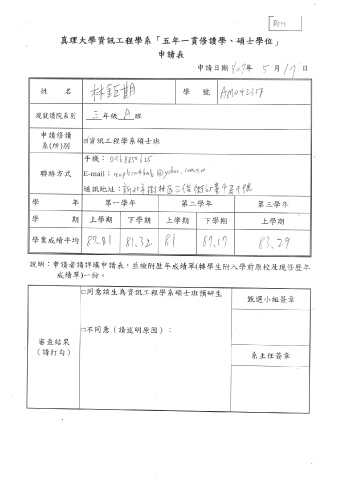 真理大學資訊工程學系「五年一貫修讀學、碩士學位」
申請表
申請日期 年 5 月 17 日
姓 名 林鈺期 學 號
現就讀院系別 三 年級 A 班
申請修讀系(所)別 □資訊工程學系碩士班
聯絡方式 手機：
E-mail：
通訊地址：新北市樹林區
學 年 第一學年 第二學年 第三學年
學 期 上學期 下學期 上學期 下學期 上學期
學業成績平均 87.21 81.32 81 87.17 83.29
說明：申請者請詳填申請表，並檢附歷年成績單(轉學生附入學前原校及現修歷年
成績單)一份。
審查結果
(請打勾)
□同意該生為資訊工程學系碩士班預研生
□不同意（請述明原因）：
甄選小組簽章
系主任簽章